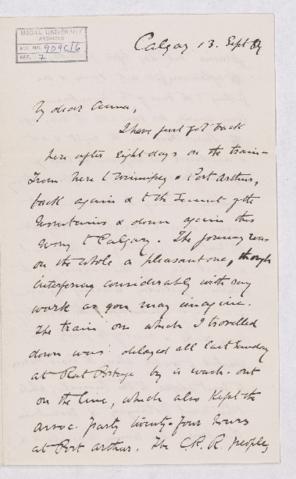 McGILL UNIVERSITY
ARCHIVES
ACC. NO. 909C/6
REF. 2
Calgary 13. Sept 84
My dear Anna,
I have just got back
here after eight days on the train –
From here to Winnipeg & Port Arthur,
back again & to the Summit of the
Mountains & down again this
way to Calgary. The journey was
on the whole a pleasant one, though
interfering considerably with my
work as you may imagine.
The train on which I travelled
down was delayed all last Sunday
at Rat Portage by a wash-out
on the line, which also kept the
assoc. party twenty-four hours
at Port Arthur. The C.P.R. people,